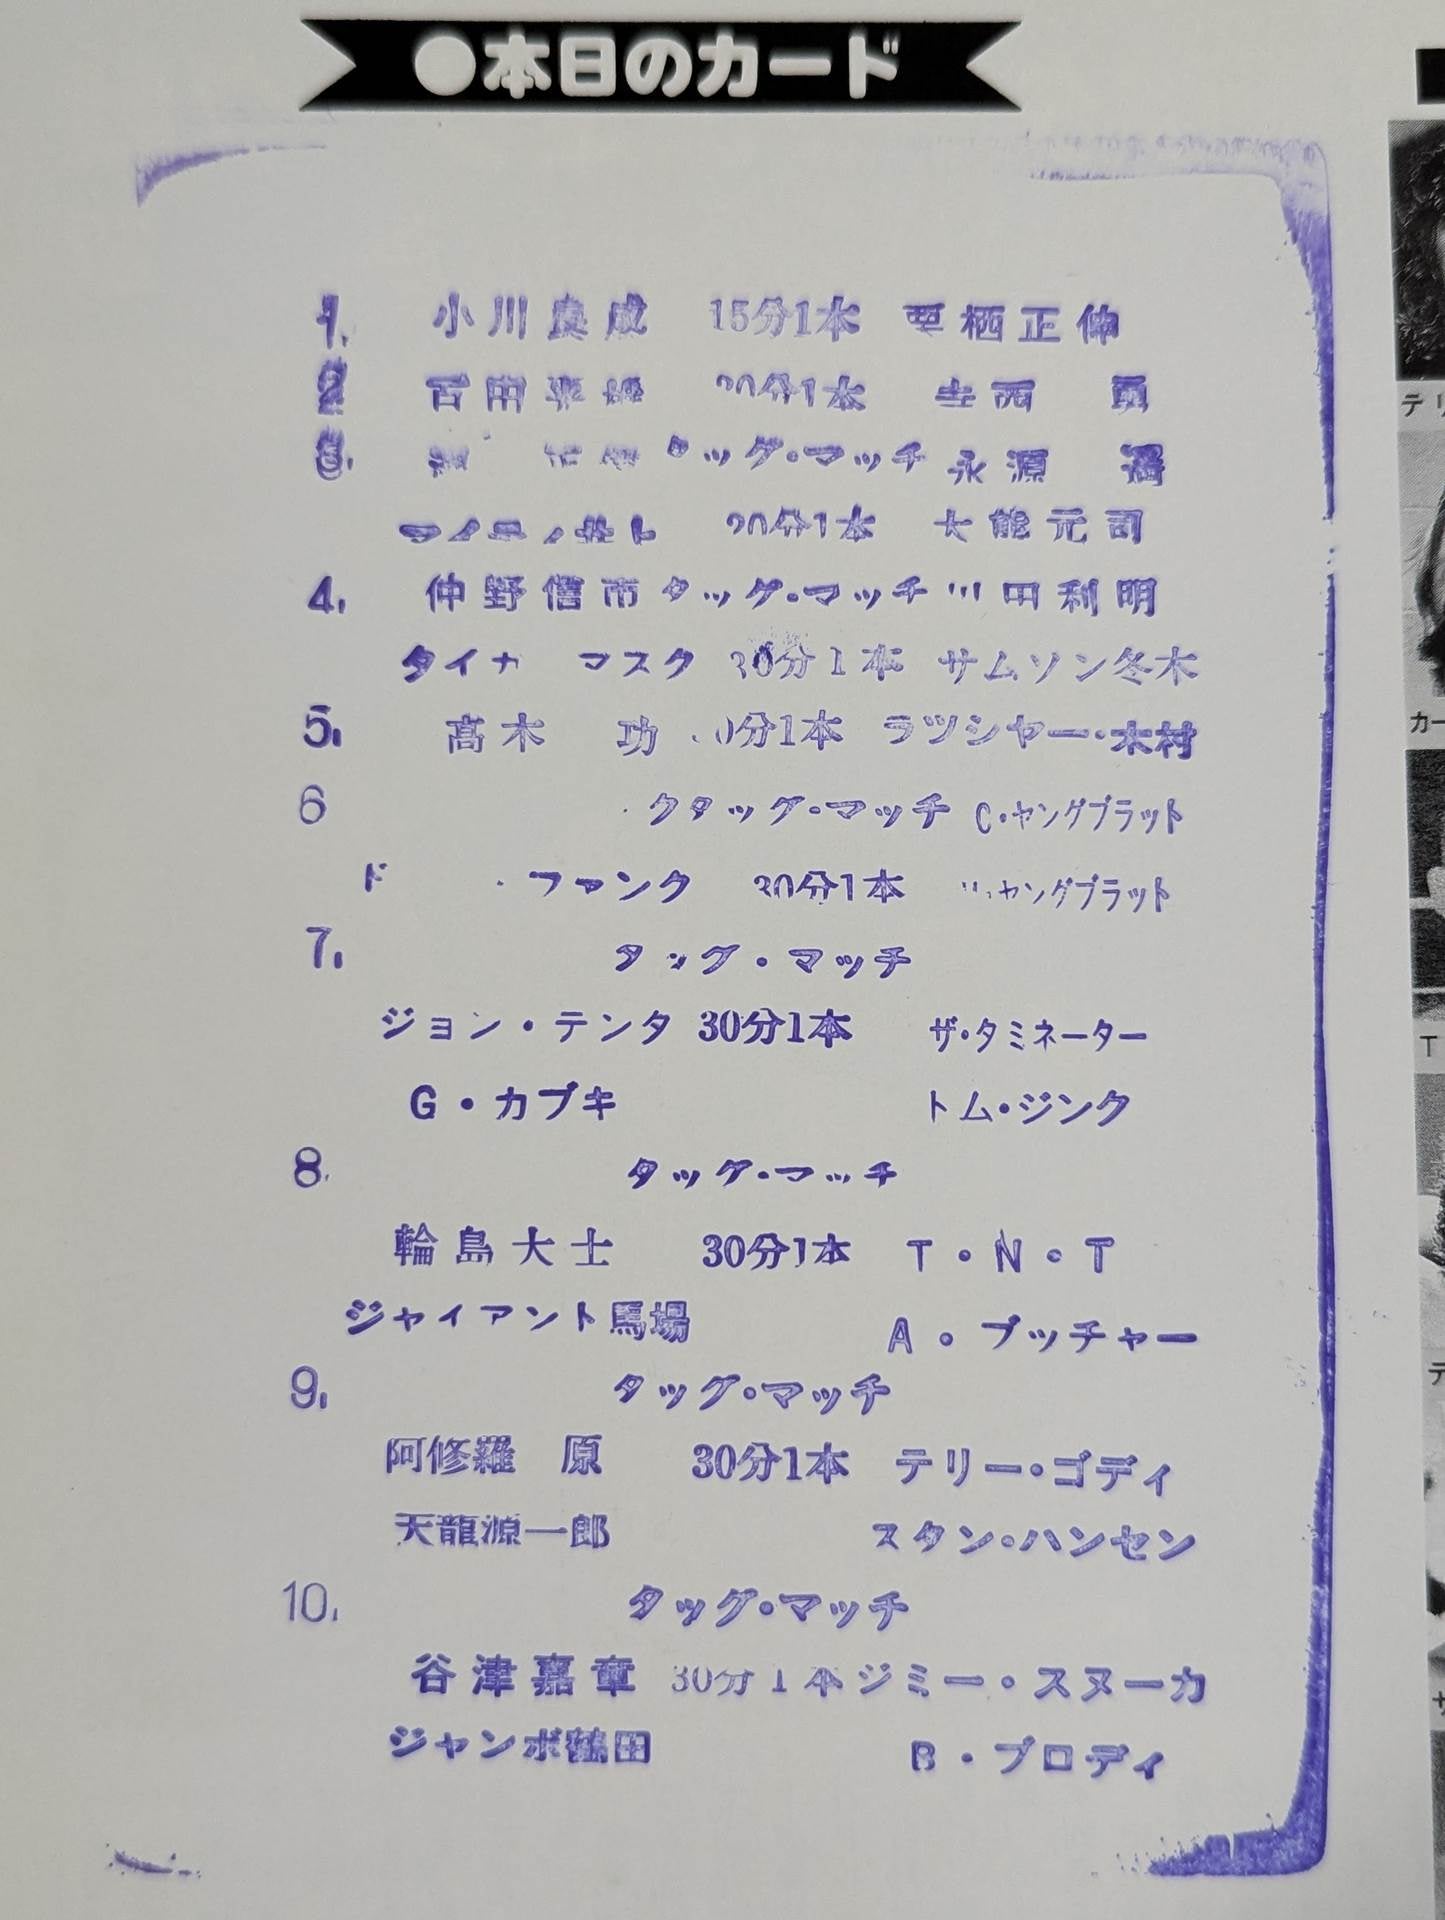 ●本日のカード
1. 小川良成 15分1本 栗栖正伸
2 百田 20分1本 寺西 勇
3. タッグ・マッチ 永源 遙
20分1本 大熊元司
4. 仲野信市 タッグ・マッチ 川田利明
タイガーマスク 30分1本 サムソン冬木
5. 高木 功 0分1本 ラッシャー・木村
6 ク タッグ・マッチ C・ヤングブラット
ド ・ファンク 30分1本 ヤングブラット
7. タッグ・マッチ
ジョン・テンタ 30分1本 ザ・タミネーター
G・カブキ トム・ジンク
8. タッグ・マッチ
輪島大士 30分1本 T・N・T
ジャイアント馬場 A・ブッチャー
9. タッグ・マッチ
阿修羅 原 30分1本 テリー・ゴディ
天龍源一郎 スタン・ハンセン
10. タッグ・マッチ
谷津嘉章 30分1本 ジミー・スヌーカ
ジャンボ鶴田 B・ブロディ
テリ
カー
T
テ